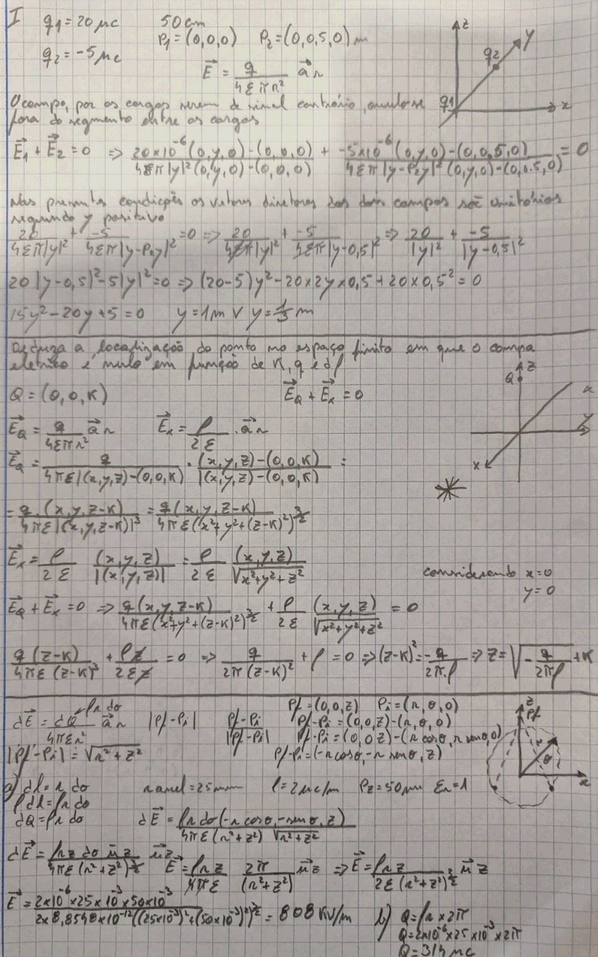 I q1 = 20 μc 50 cm
P1 = (0,0,0) P2 = (0,0,5,0) m
q2 = -5 μc
E = q/4επr² ar
z
y
q2
q1
x
O campo, por as cargas serem de sinal contrário,
fora do segmento entre as cargas
E1 + E2 = 0 ⇒ 20×10⁻⁶ (0,y,0)-(0,0,0) / 4επ|y|² (0,y,0)-(0,0,0) + -5×10⁻⁶ (0,y,0)-(0,0,5,0) / 4επ|y-P2y|² (0,y,0)-(0,0,5,0) = 0
Nas presentes condições os vetores diretores dos dois campos são unitários
segundo y positivo
20/4επ|y|² + -5/4επ|y-P2y|² = 0 ⇒ 20/4επ|y|² + -5/4επ|y-0,5|² ⇒ 20/|y|² + -5/|y-0,5|²
20|y-0,5|²-5|y|² = 0 ⇒ (20-5)y²-20×2y×0,5+20×0,5² = 0
15y²-20y+5 = 0 y = 1m ∨ y = 1/3 m
Deduza a localização do ponto no espaço finito em que o campo
elétrico é nulo em função de K, q e ρ
Q = (0,0,K) EQ + Ex = 0
Q z
y
x
EQ = q/4επr² ar Ex = ρ/2ε . ar
EQ = q/4πε|(x,y,z)-(0,0,K)| . (x,y,z)-(0,0,K)/|(x,y,z)-(0,0,K)| =
= q.(x,y,z-K)/4πε|(x,y,z-K)|³ = q(x,y,z-K)/4πε(x²+y²+(z-K)²)^3/2
Ex = ρ/2ε (x,y,z)/|(x,y,z)| = ρ/2ε (x,y,z)/√x²+y²+z²
considerando x=0
y=0
EQ + Ex = 0 ⇒ q(x,y,z-K)/4πε(x²+y²+(z-K)²)^3/2 + ρ/2ε (x,y,z)/√x²+y²+z² = 0
q(z-K)/4πε(z-K)³ + ρz/2εz = 0 ⇒ q/2π(z-K)² + ρ = 0 ⇒ (z-K)² = -q/2πρ ⇒ z = √-q/2πρ + K
dE = dQ/4πεr² ar ρr dσ |Pf-Pi| Pf-Pi/|Pf-Pi|
Pf = (0,0,z) Pi = (r,θ,0)
Pf-Pi = (0,0,z)-(r,θ,0)
Pf-Pi = (0,0,z)-(r cosθ, r sinθ,0)
|Pf-Pi| = √r²+z² Pf-Pi = (-r cosθ,-r sinθ,z)
z
Pf
r
θ
x
a) dl = r dσ r anel = 25mm l = 2μc/m Pz = 50μm Er = 1
ρdl = ρr dσ
dQ = ρr dσ dE = ρr dσ (-r cosθ,-r sinθ,z)/4πε(r²+z²)√r²+z²
dE = ρrz dσ uz/4πε(r²+z²)^3/2 uz E = ρrz/4πε 2π/(r²+z²) uz ⇒ E = ρrz/2ε(r²+z²)^3/2 uz
E = 2×10⁻⁶×25×10⁻³×50×10⁻³/2×8,8548×10⁻¹²((25×10⁻³)²+(50×10⁻³)²)^3/2 = 808 KV/m
b) Q = ρr×2π
Q = 2×10⁻⁶×25×10⁻³×2π
Q = 314 μc